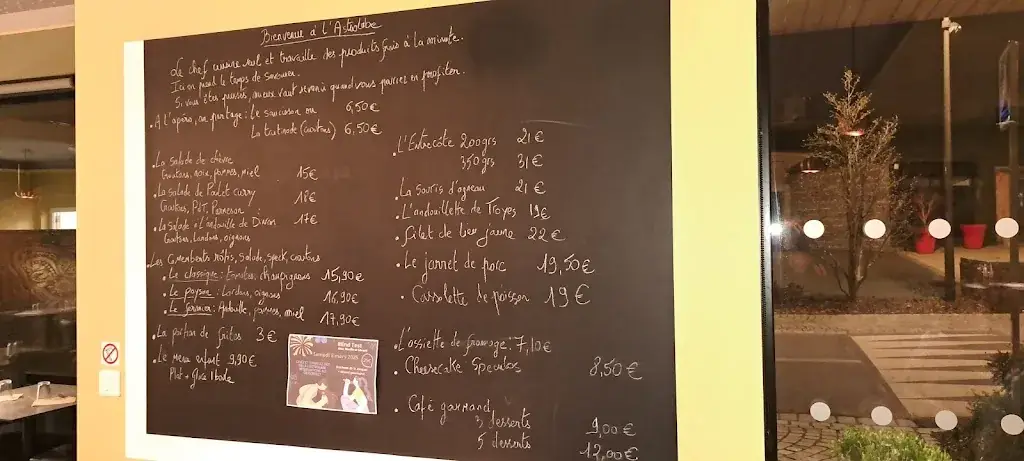 Bienvenue à l'Astrolabe
Le chef cuisine seul et travaille des produits frais à la minute.
Ici on prend le temps de savourer.
Si vous êtes pressés, mieux vaut revenir quand vous pourrez en profiter.
. A l'apéro, en partage: Le saucisson ou 6,50€
La tartinade (croutons) 6,50€
. La salade de chèvre 15€
Croutons, noix, pommes, miel
. La salade de Poulet curry 18€
Croutons, PdT, Parmesan
. La salade à l'andouille de 17€
Croutons, Lardons, oignons
. Les Camemberts rôtis, salade, speck, croutons
. Le classique: champignons 15,90€
. Le paysan: Lardons, oignons 16,90€
. Le fermier: Andouille, pommes, miel 17,90€
. La portion de frites 3€
. Le Menu enfant 9,90€
Plat + glace 1 boule
. L'Entrecôte 200grs 21€
350grs 31€
. La souris d'agneau 21€
. L'andouillette de Troyes 19€
. filet de lieu jaune 22€
. Le jarret de porc 19,50€
. Cassolette de poisson 19€
. L'assiette de fromage: 7,10€
. Cheesecake Speculos 8,50€
. Café gourmand
3 desserts 9,00€
5 desserts 12,00€
Blind Test